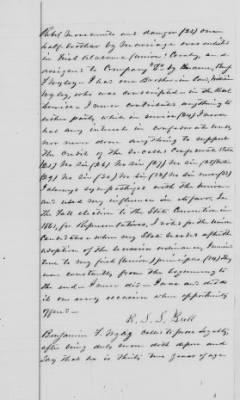 Rebel movements and danger (22) one
half brother by Marriage was enlisted
in First Alabama (Union) Cavalry and
assigned to Company "E" by
F. Wyley I has one Brother in law,
Wyley, who was conscripted in the Rebel
Service I never contributed anything to
either party while in service (24) I never
has any interest in confederate
nor never done anything to support
the credit of the so called Confederate
(25) No Sir (26) No Sir (27) No Sir
(29) No Sir (30) No Sir (31) No Sir
I always sympathized with the Union
and used my influence in its favor. In
the fall election to the State Convention in
1861, for Representatives, I voted for the Union
Candidates when my State after the
adoption of the secession ordinance, I was
true to my first (Union) principles
was constantly, from the beginning to
the end I never did I can and did do
it on every occasion when opportunity
offered
R. S. S.
Benjamin F. Wyley called to prove loyalty,
after being duly sworn doth depose and
Say that he is thirty two years of age